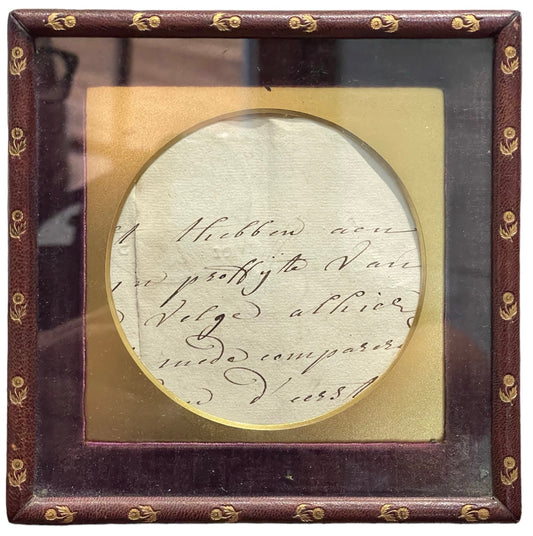 t hebben aen
n proffyte van
Velge alhier
mede comparere
d' eerst